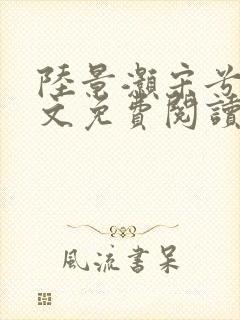 陸景灝宋
文免費閱讀
風流書呆